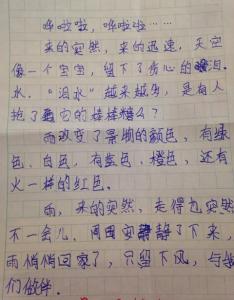 哗啦啦，哗啦啦……
来的突然，来的迅速，天空
像一个宝宝，留下了伤心的泪
水，“泪水”越来越多，是有人
抢了它的棒棒糖么？
雨改变了景物的颜色，有绿
色、白色，有蓝色、橙色，还有
火一样的红色。
雨，来的突然，走得也突然
不一会儿，周围安静了下来，
雨悄悄回家了，只留下风，与
们做伴。